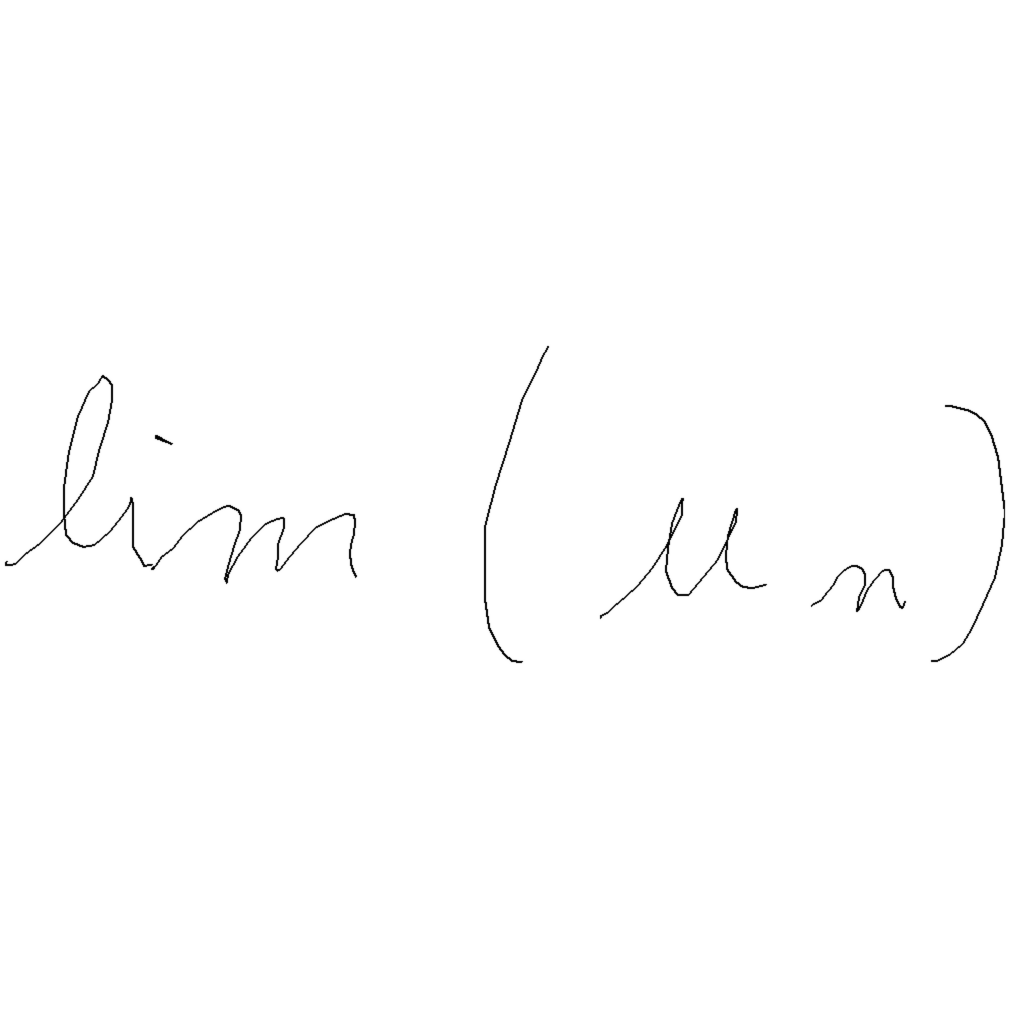 lim (u_n)